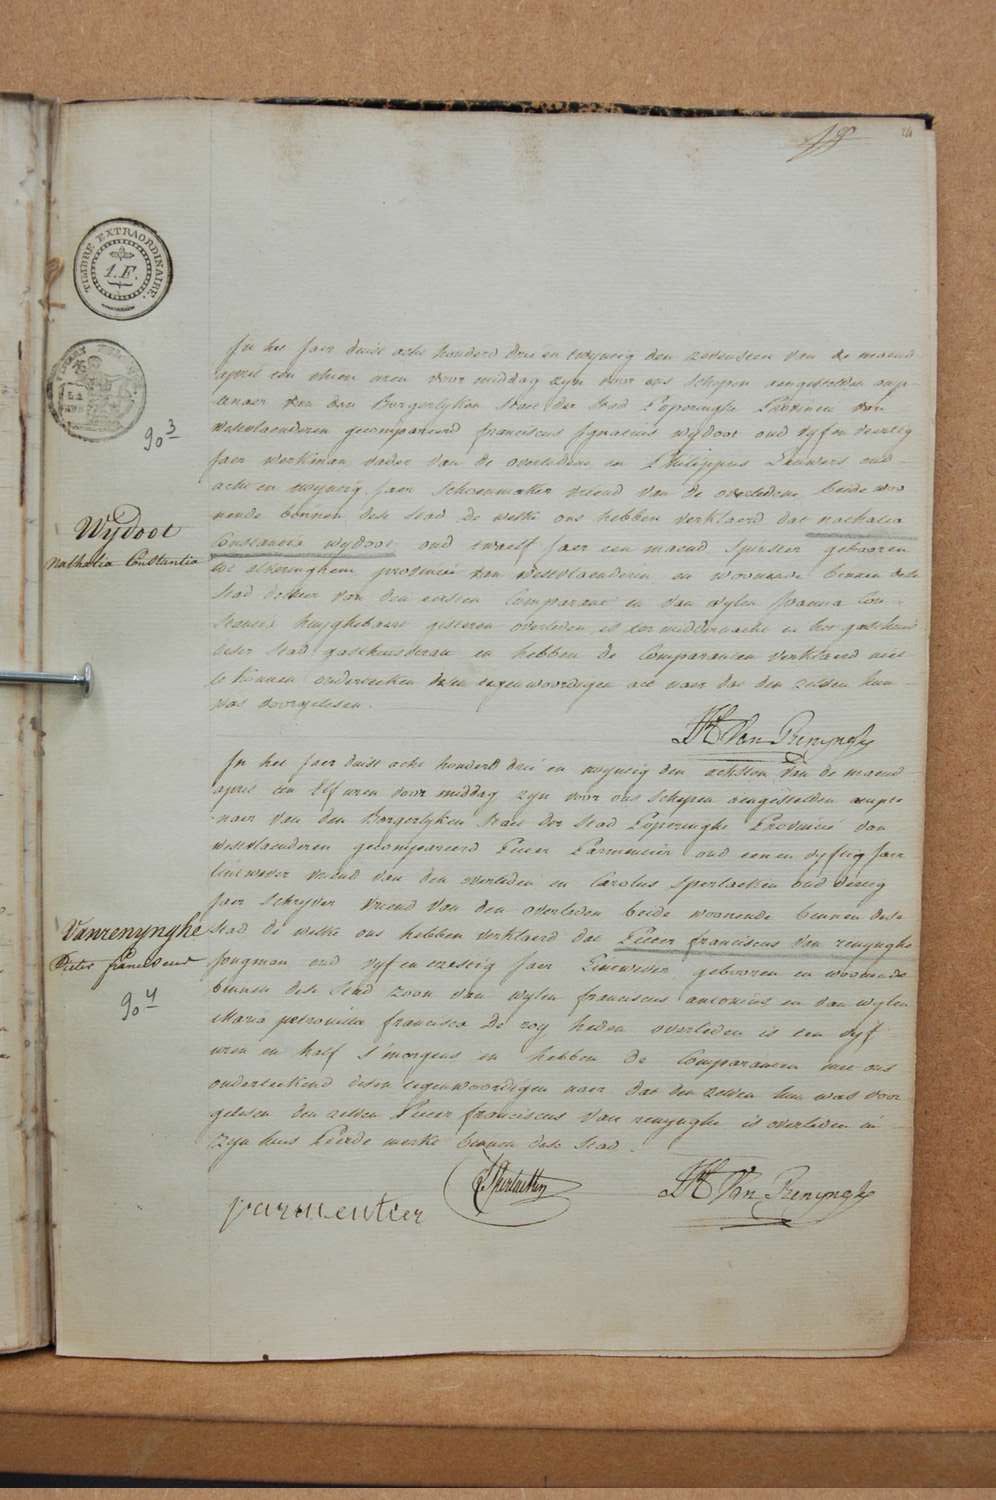 19
TIMBRE EXTRAORDINAIRE.
1.F.
90 3
Wijdoot
Nathalia Constantia
In het Jaer duist acht honderd drie en twijntig den zevensten van de maend
april ten thien uren voor middag zijn voor ons Schepen aengestelden amp-
tenaer van den Borgerlyken Staet der Stad Poperinghe Provincie van
Westvlaenderen gecompareerd franciscus Ignatius wijdoot oud vyf en veertig
Jaer werkman vader van de overledene en Philippus Lauwers oud
acht en twyntig Jaer Schoenmaker vriend van de overledene beide woo
nende binnen dese Stad De welke ons hebben verklaerd dat nathalia
Constantia wijdoot oud twaelf Jaer een maend Spinster gebooren
tot alveringhem provincie van Westvlaenderen en woonende binnen dese
Stad dochter van den eersten Comparant en van wylen Joanna Con-
stantia huyghebaert gisteren overleden is ter middernacht in het gasthuis
deser Stad gasthuisstraat en hebben de Comparanten verklaerd niet
te kunnen onderteeken desen tegenwoordigen act naer dat den zelven hun
was voorgelesen.
Van Renynghe
In het Jaer duist acht honderd drie en twyntig den achtsten van de maend
april ten Elf uren voor middag zyn voor ons Schepen aengestelden ampte
naer van den Borgerlyken Staet der Stad Poperinghe Provincie van
Westvlaenderen gecompareerd Pieter Parmentier oud een en vyftig Jaer
linwever vriend van den overleden en Carolus Sperlaeken oud dertig
Jaer Schryver vriend van den overleden beide woonende binnen dese
Stad de welke ons hebben verklaerd dat Pieter franciscus van renynghe
Jongman oud vyf en zestig Jaer Linwever gebooren en woonende
binnen dese Stad Zoon van wylen franciscus antonius en van wylen
Maria petronilla francisca De roy heden overleden is ten vyf
uren en half s'morgens en hebben de Comparanten met ons
onderteekend desen tegenwoordigen naer dat den zelven hun was voor
gelesen den zelven Pieter franciscus Van renynghe is overleden in
zyn huis Peerde merkt binnen dese Stad.
Vanrenynghe
Pieter franciscus
90 4
parmentier
Van Renynghe